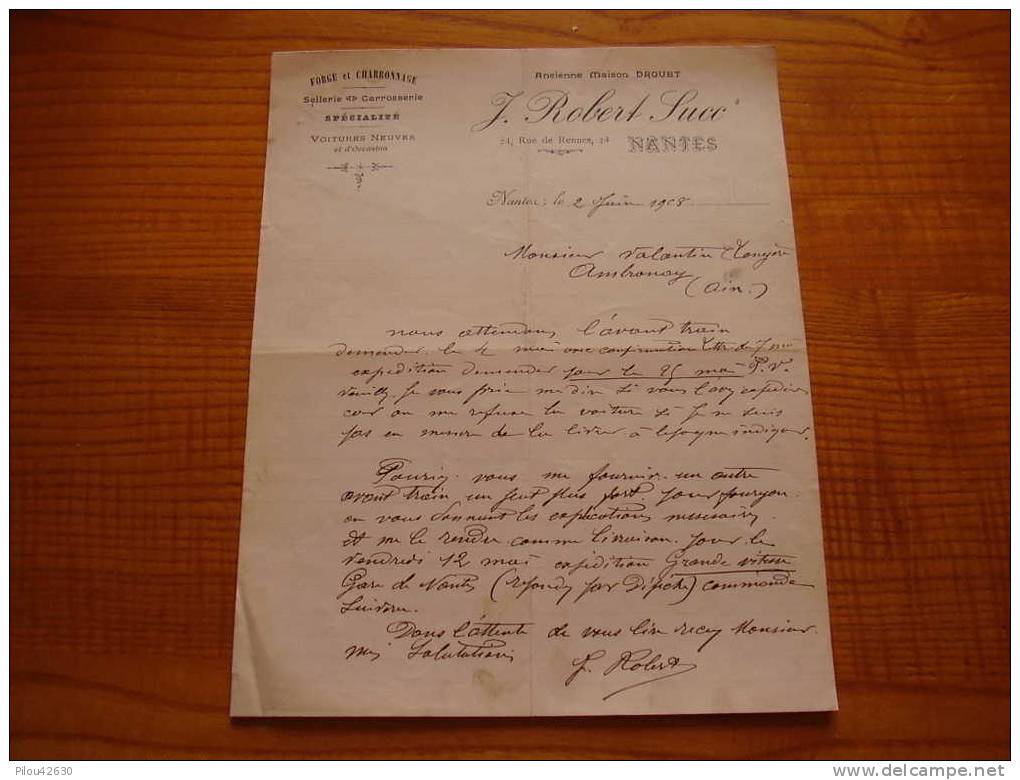 FORGE et CHARRONNAGE
Sellerie et Carrosserie
SPÉCIALITÉ
VOITURES NEUVES
et d'Occasion
Ancienne Maison DROUET
J. Robert Succ
24, Rue de Rennes, 24
NANTES
Nantes, le 2 Juin 1908
Monsieur Valantin
Ambronay
(Ain.)
nous attendons l'avant train
demander le 4 mai avec confirmation lettre du 7
expedition demander pour le 25 mai P.V.
Je vous prie me dire si vous l'avez expedier
car on me refuse la voiture si Je ne suis
pas en mesure de la livrer à
Pouriez vous me fournir un autre
avant train un peut plus fort pour fourgon
en vous donnant les explications nessesaires
et me le rendre comme livraison pour le
Vendredi 12 mai expédition Grande vitesse
Gare de Nantes (reponds par Dépêche) commande
suivra.
Dans l'attente de vous lire recevez Monsieur
mes Salutations
J. Robert
Pilou42630
www.delcampe.net